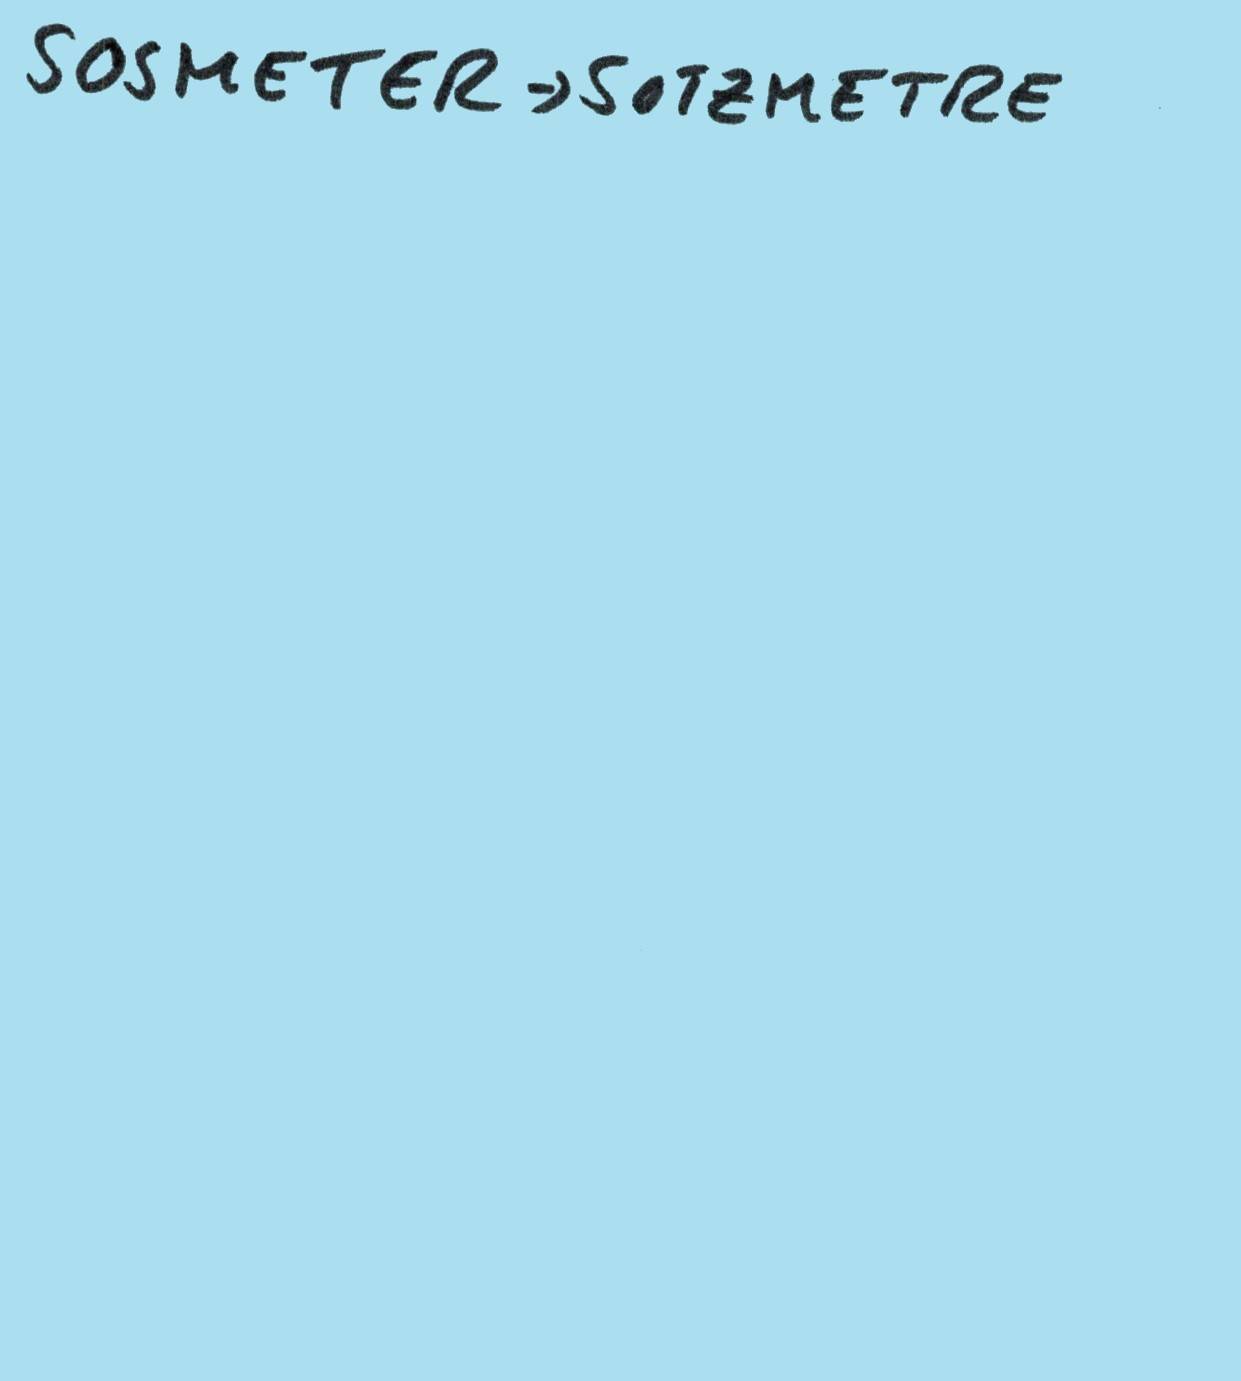 SOSMETER → SOTZMETRE